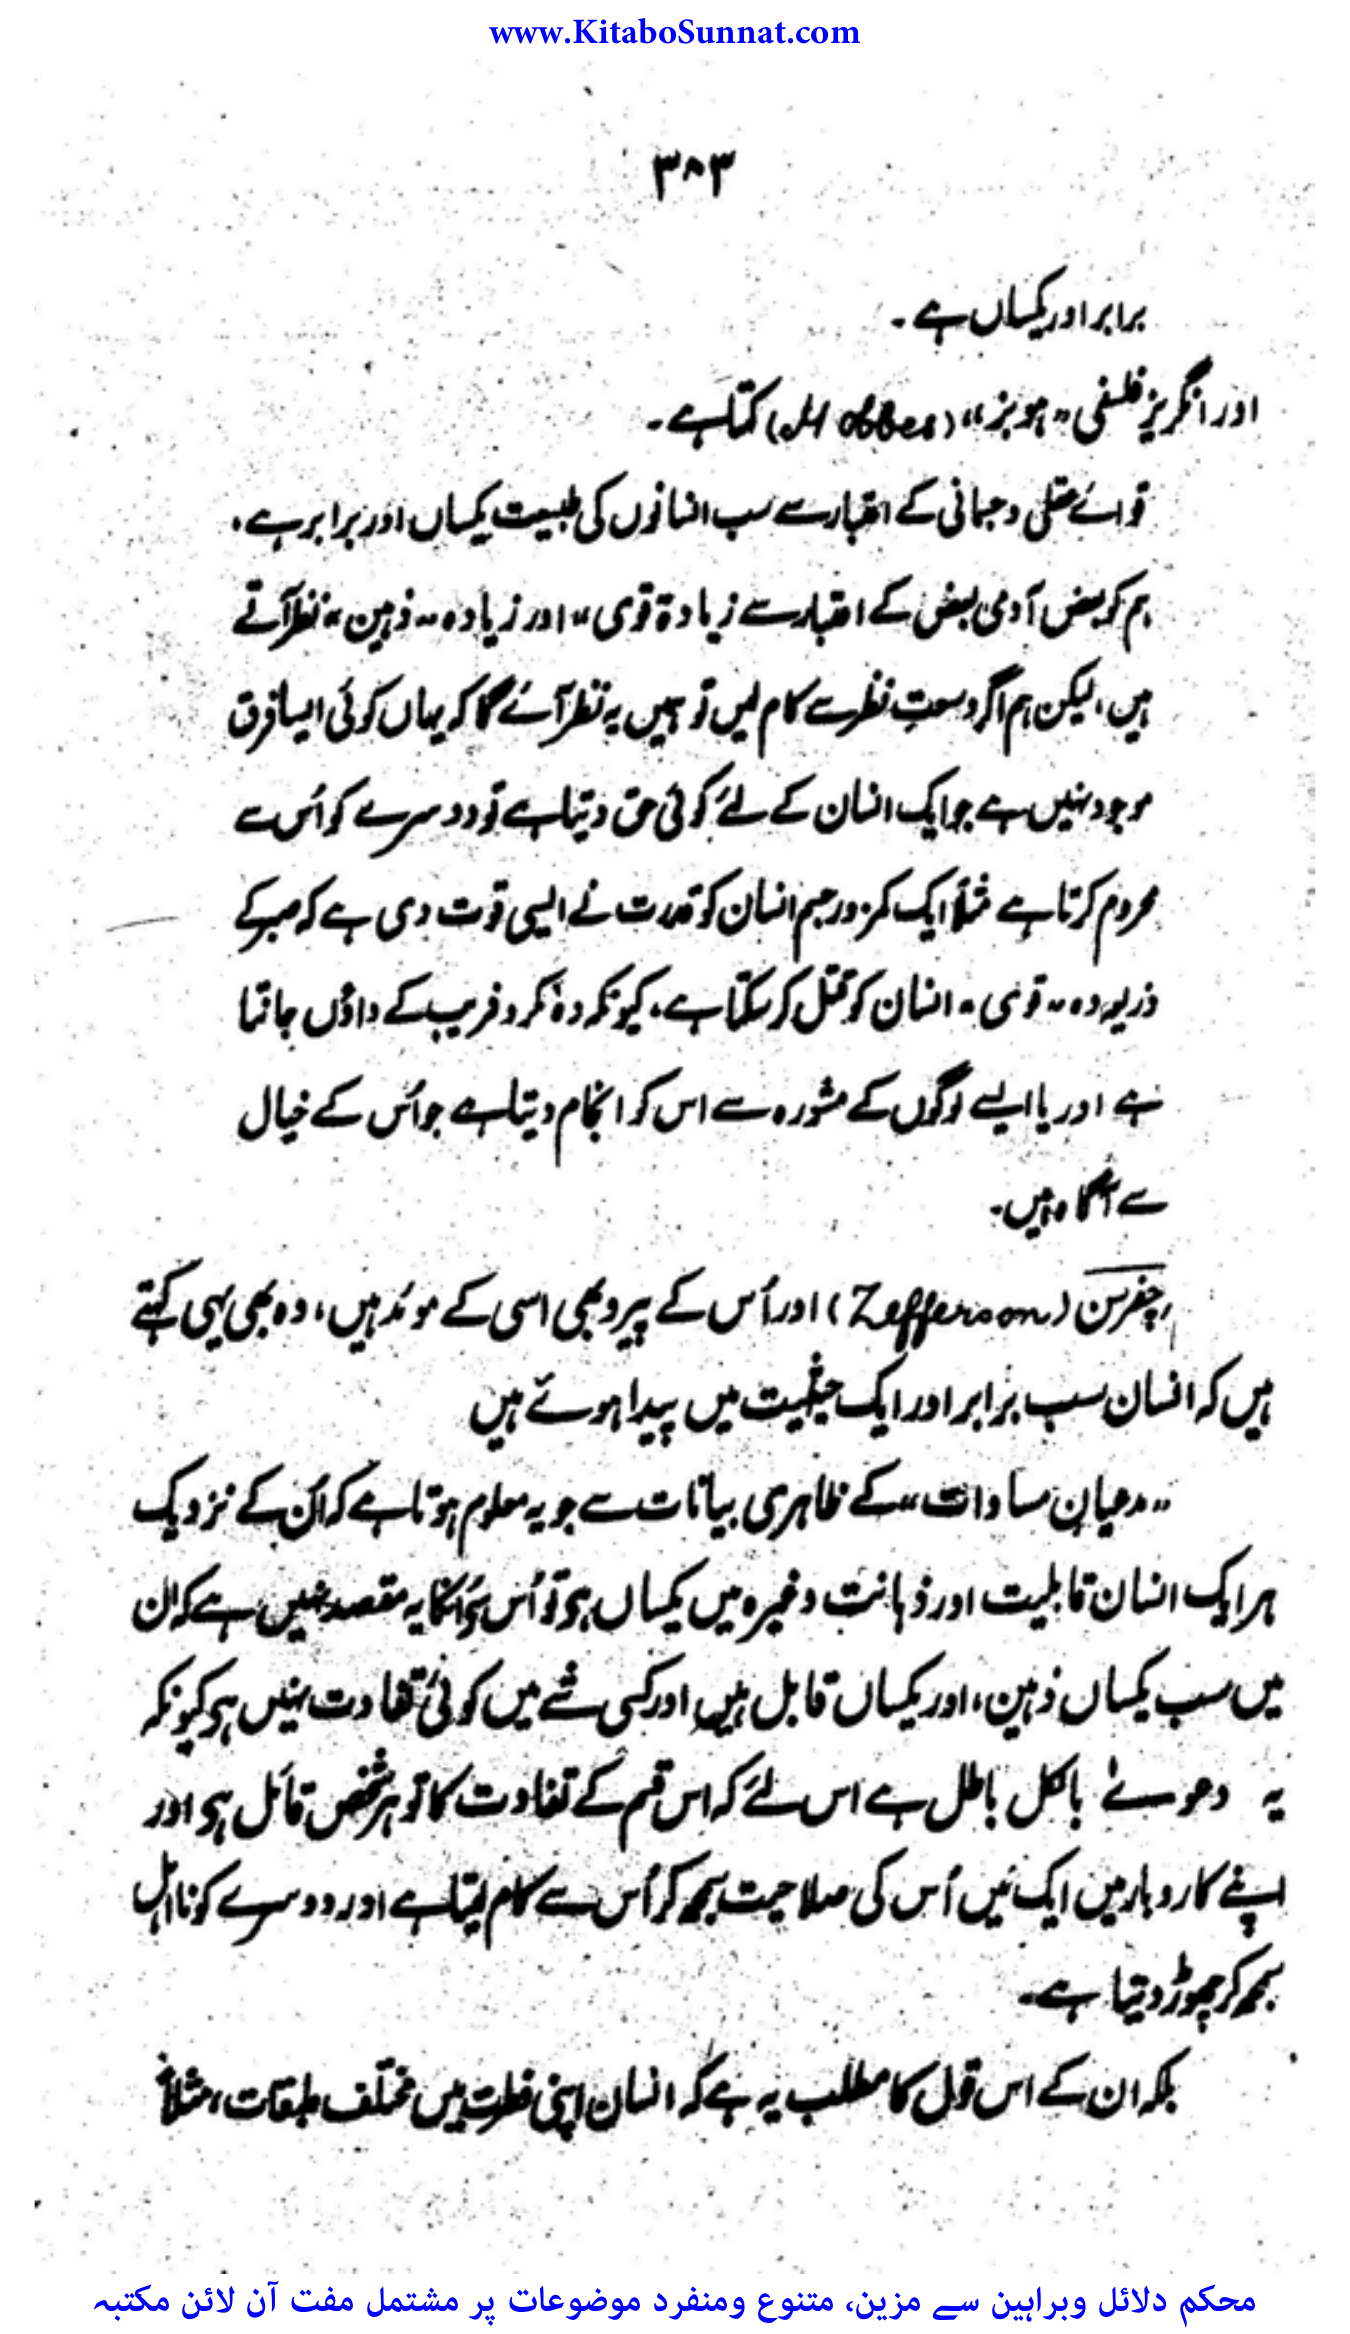 www.KitaboSunnat.com
۳۸۳
برابر اور یکساں ہے ۔
اور انگریز فلسفی "ہوبز" (Hobbes) کہتا ہے ۔
قوائے عقلی و جسمانی کے اعتبار سے سب انسانوں کی طبیعت یکساں اور برابر ہے،
ہم کو بعض آدمی بعض کے اعتبار سے زیادہ قوی" اور زیادہ "ذہین" نظر آتے
ہیں، لیکن ہم اگر وسعتِ نظر سے کام لیں تو ہمیں یہ نظر آئے گا کہ یہاں کوئی ایسا فرق
موجود نہیں ہے جو ایک انسان کے لئے کوئی حق دیتا ہے تو دوسرے کو اُس سے
محروم کرتا ہے مثلاً ایک کمزور جسم انسان کو قدرت نے ایسی قوت دی ہے کہ جس کے
ذریعہ وہ "قوی" انسان کو قتل کر سکتا ہے، کیونکہ وہ مکر و فریب کے داؤں جانتا
ہے اور یا ایسے لوگوں کے مشورہ سے اس کو انجام دیتا ہے جو اُس کے خیال
سے آگاہ ہیں۔
جفرسن (Zefferson) اور اُس کے پیرو بھی اسی کے موئد ہیں، وہ بھی یہی کہتے
ہیں کہ انسان سب برابر اور ایک حیثیت میں پیدا ہوئے ہیں
"مدعیانِ مساوات" کے ظاہری بیانات سے جو یہ معلوم ہوتا ہے کہ اُن کے نزدیک
ہر ایک انسان قابلیت اور ذہانت وغیرہ میں یکساں ہی تو اُس سے اُنکا یہ مقصد نہیں ہے کہ ان
میں سب یکساں ذہین، اور یکساں قابل ہیں اور کسی شے میں کوئی تفاوت نہیں ہی کیونکہ
یہ دعوے بالکل باطل ہے اس لئے کہ اس قسم کے تفاوت کا تو ہر شخص قائل ہی اور
اپنے کاروبار میں ایک میں اُس کی صلاحیت سمجھ کر اُس سے کام لیتا ہے اور دوسرے کو نااہل
سمجھ کر چھوڑ دیتا ہے۔
بلکہ ان کے اس قول کا مطلب یہ ہے کہ انسان اپنی فطرت میں مختلف طبقات، مثلاً
محکم دلائل وبراہین سے مزین، متنوع ومنفرد موضوعات پر مشتمل مفت آن لائن مکتبہ